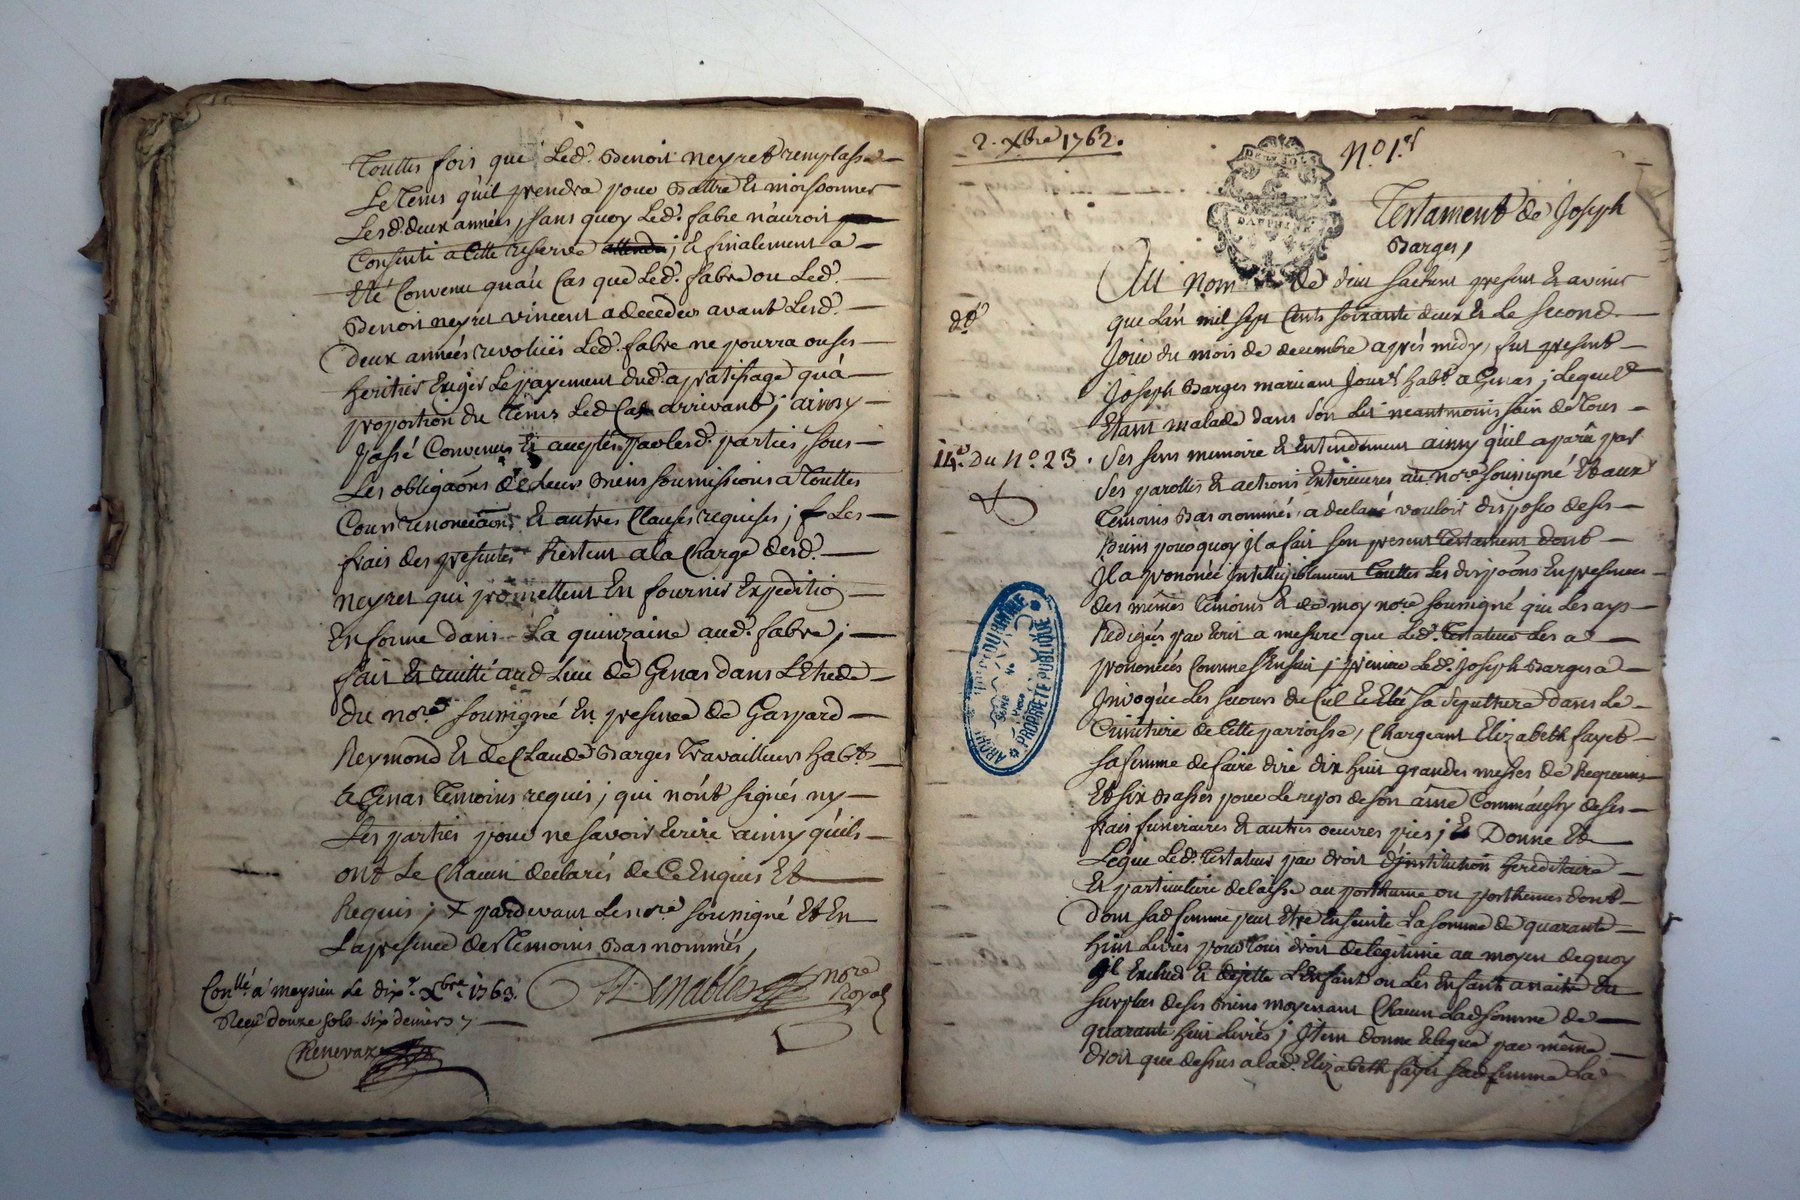 Touttes fois que Led. Benoit neyret remplasse
Le Tems qu'il prendra pour Battre Et moissonner
Lesd. deux années, sans quoy Led. fabre n'auroit
Consenti a Cette reserve ; Et finalement a
Eté Convenu qu'au Cas que Led. fabre ou Led.
Benoit neyret vincent a deceder avant Lesd.
deux années revolües Led. fabre ne pourra ou ses
heritiers Exiger Le payement dud. apratissage qu'a
proportion du Tems Led Cas arrivant ; ainsy
passé Convenus Et acceptés par Lesd. parties sous
Les obligaons de Leurs Biens soumissions a Touttes
Cours renonciaons Et autres Clauses requises ; Les
frais des presentes Restent a la Charge desd.
neyret qui promettent En fournir Expeditio
En forme dans La quinzaine aud. fabre ;
fait Et quitté aud Lieu de Genas dans L'Etude
du nore. soussigné En presence de Gaspard
Reymond Et de Claude Barges Travailleurs habts
a Genas Temoins requis ; qui n'ont signés ny
Les parties pour ne savoir Ecrire ainsy qu'ils
ont Le Chacun declarés de Ce Enquis Et
Requis ; pardevant Le nore soussigné Et En
La presence des Temoins Bas nommés
Conllé a meysieu Le dix Xbre 1763.
Reçu douze sols six deniers
Chenevaz
Denable nore
Royal
2. Xbre 1762.
No 1er
Testament de Joseph
Barges,
DAUPHINE
Au Nom de dieu sachent presents Et avenir
que L'an mil sept Cents soixante deux Et Le second
Jour du mois de decembre aprés midy, fut present
Joseph Barges Jour. habt. a Genas ; Lequel
Etant malade dans son Lit neantmoins sain de Tous
14e. Du No. 23.
Ses sens memoire Et Entendement ainsy qu'il a paru par
Ses parolles Et actions Exterieures au nore soussigné Et aux
Temoins Bas nommés a declaré vouloir disposer de ses
Biens pourquoy Il a fait son present Testament dont
Il a prononcé Intelligiblement Touttes Les dispoons En presence
des mêmes Temoins Et de moy nore soussigné qui Les ays
Redigés par Ecrit a mesure que Led. Testateur Les a
prononcés Comme s'Ensuit ; premiere Led. Joseph Barges a
Invoqué Les secours du Ciel Et Elu sa sepulture dans Le
Cimitiere de Cette parroisse, Chargeant Elizabeth fayet
sa femme de faire dire dix huit grandes messes de Requiem
Et six Basses pour Le repos de son âme Comm'aussy de ses
frais funeraires Et autres oeuvres pies ; Donne Et
Legue Led. Testateur par droit d'institution hereditaire
Et particuliere delaisse au posthume ou posthumes dont
Dont sad femme peut Etre Enceinte La somme de quarante
huit Livres pour Tous droit de Legitime au moyen de quoy
Il Exclud Et dejette L'Enfant ou Les Enfants a naitre du
surplus de ses Biens moyenant Chacun Lad somme de
quarante huit Livres ; Item donne Et Legue par même
droit que dessus a lad. Elizabeth fayet sad femme La
PROPRIETE PUBLIQUE